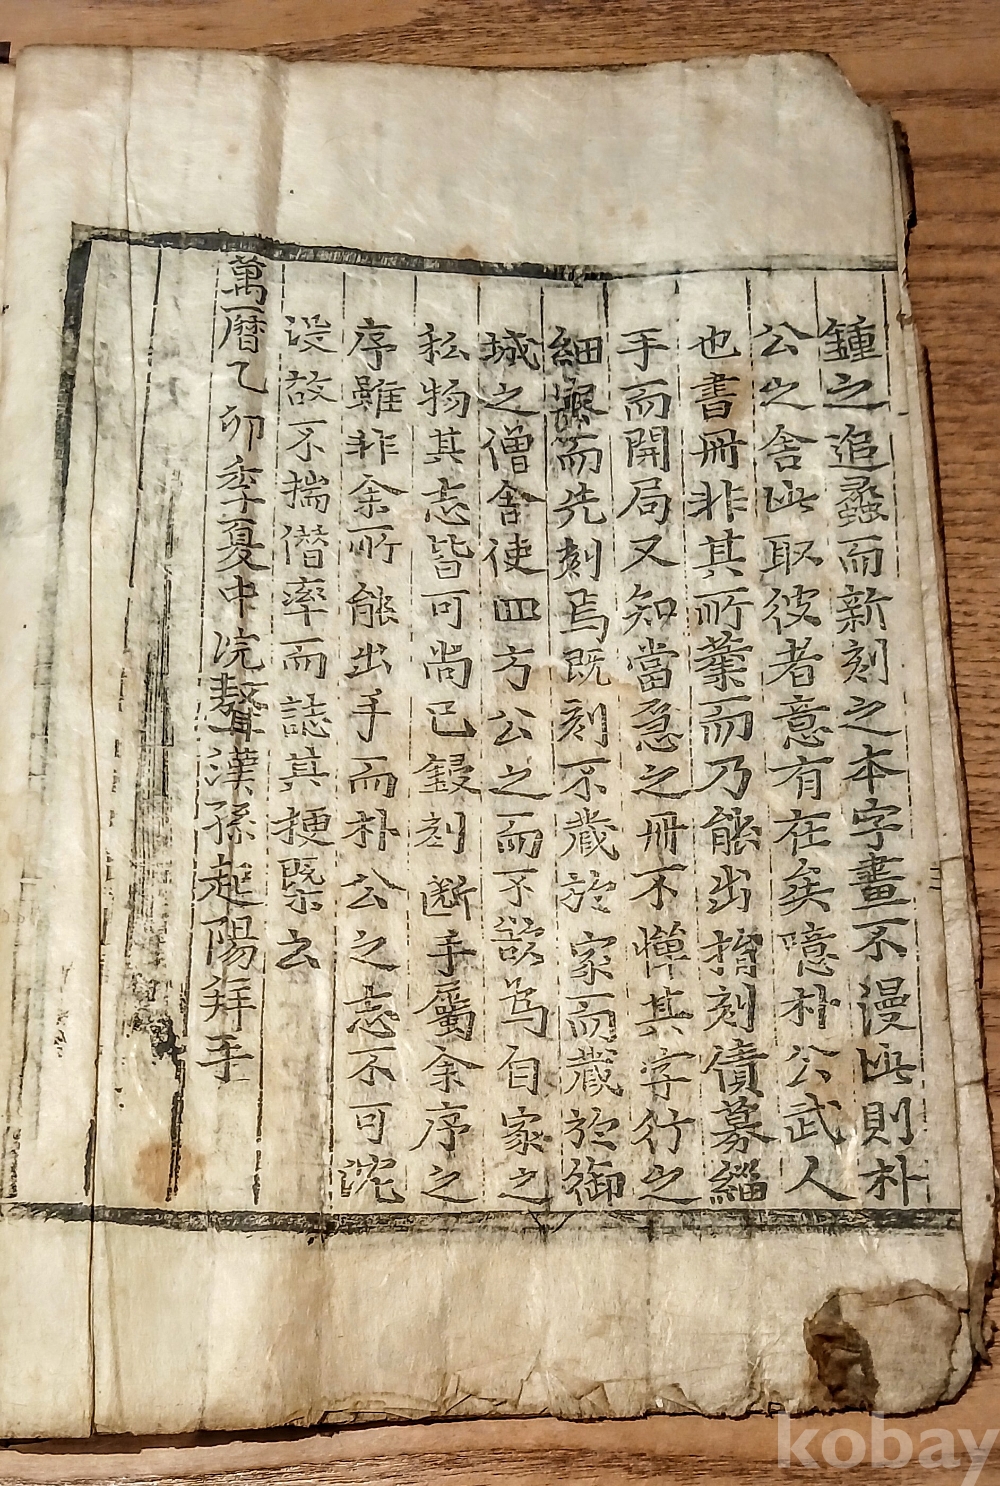 鍾之追蠡而新刻之本字畫不漫此則朴
公之舍此取彼者意有在矣噫朴公武人
也書冊非其所業而乃能出指刻債募緇
手而開局又知當急之冊不憚其字行之
細 而先刻焉既刻不藏於家而藏於御
城之僧舍使四方公之而不欲爲自家之
私物其志皆可尚已鋟刻斷手屬余序之
序雖非余所能出手而朴公之志不可沈
沒故不揣僭率而誌其梗槩云
萬曆乙卯季夏中浣聱漢孫起陽拜手
kobay